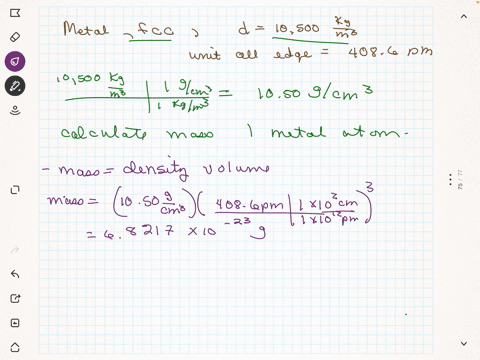 Metal, fcc, d = 10,500 Kg/m³
unit all edge = 408.6 pm
10,500 Kg/m³ | 1 g/cm³ / 1 Kg/m³ = 10.50 g/cm³
calculate mass 1 metal atom.
- mass = density volume
mass = (10.50 g/cm³) (408.6 pm | 1 × 10² cm / 1 × 10¹² pm)³
= 6.8217 × 10⁻²³ g
75 / 77